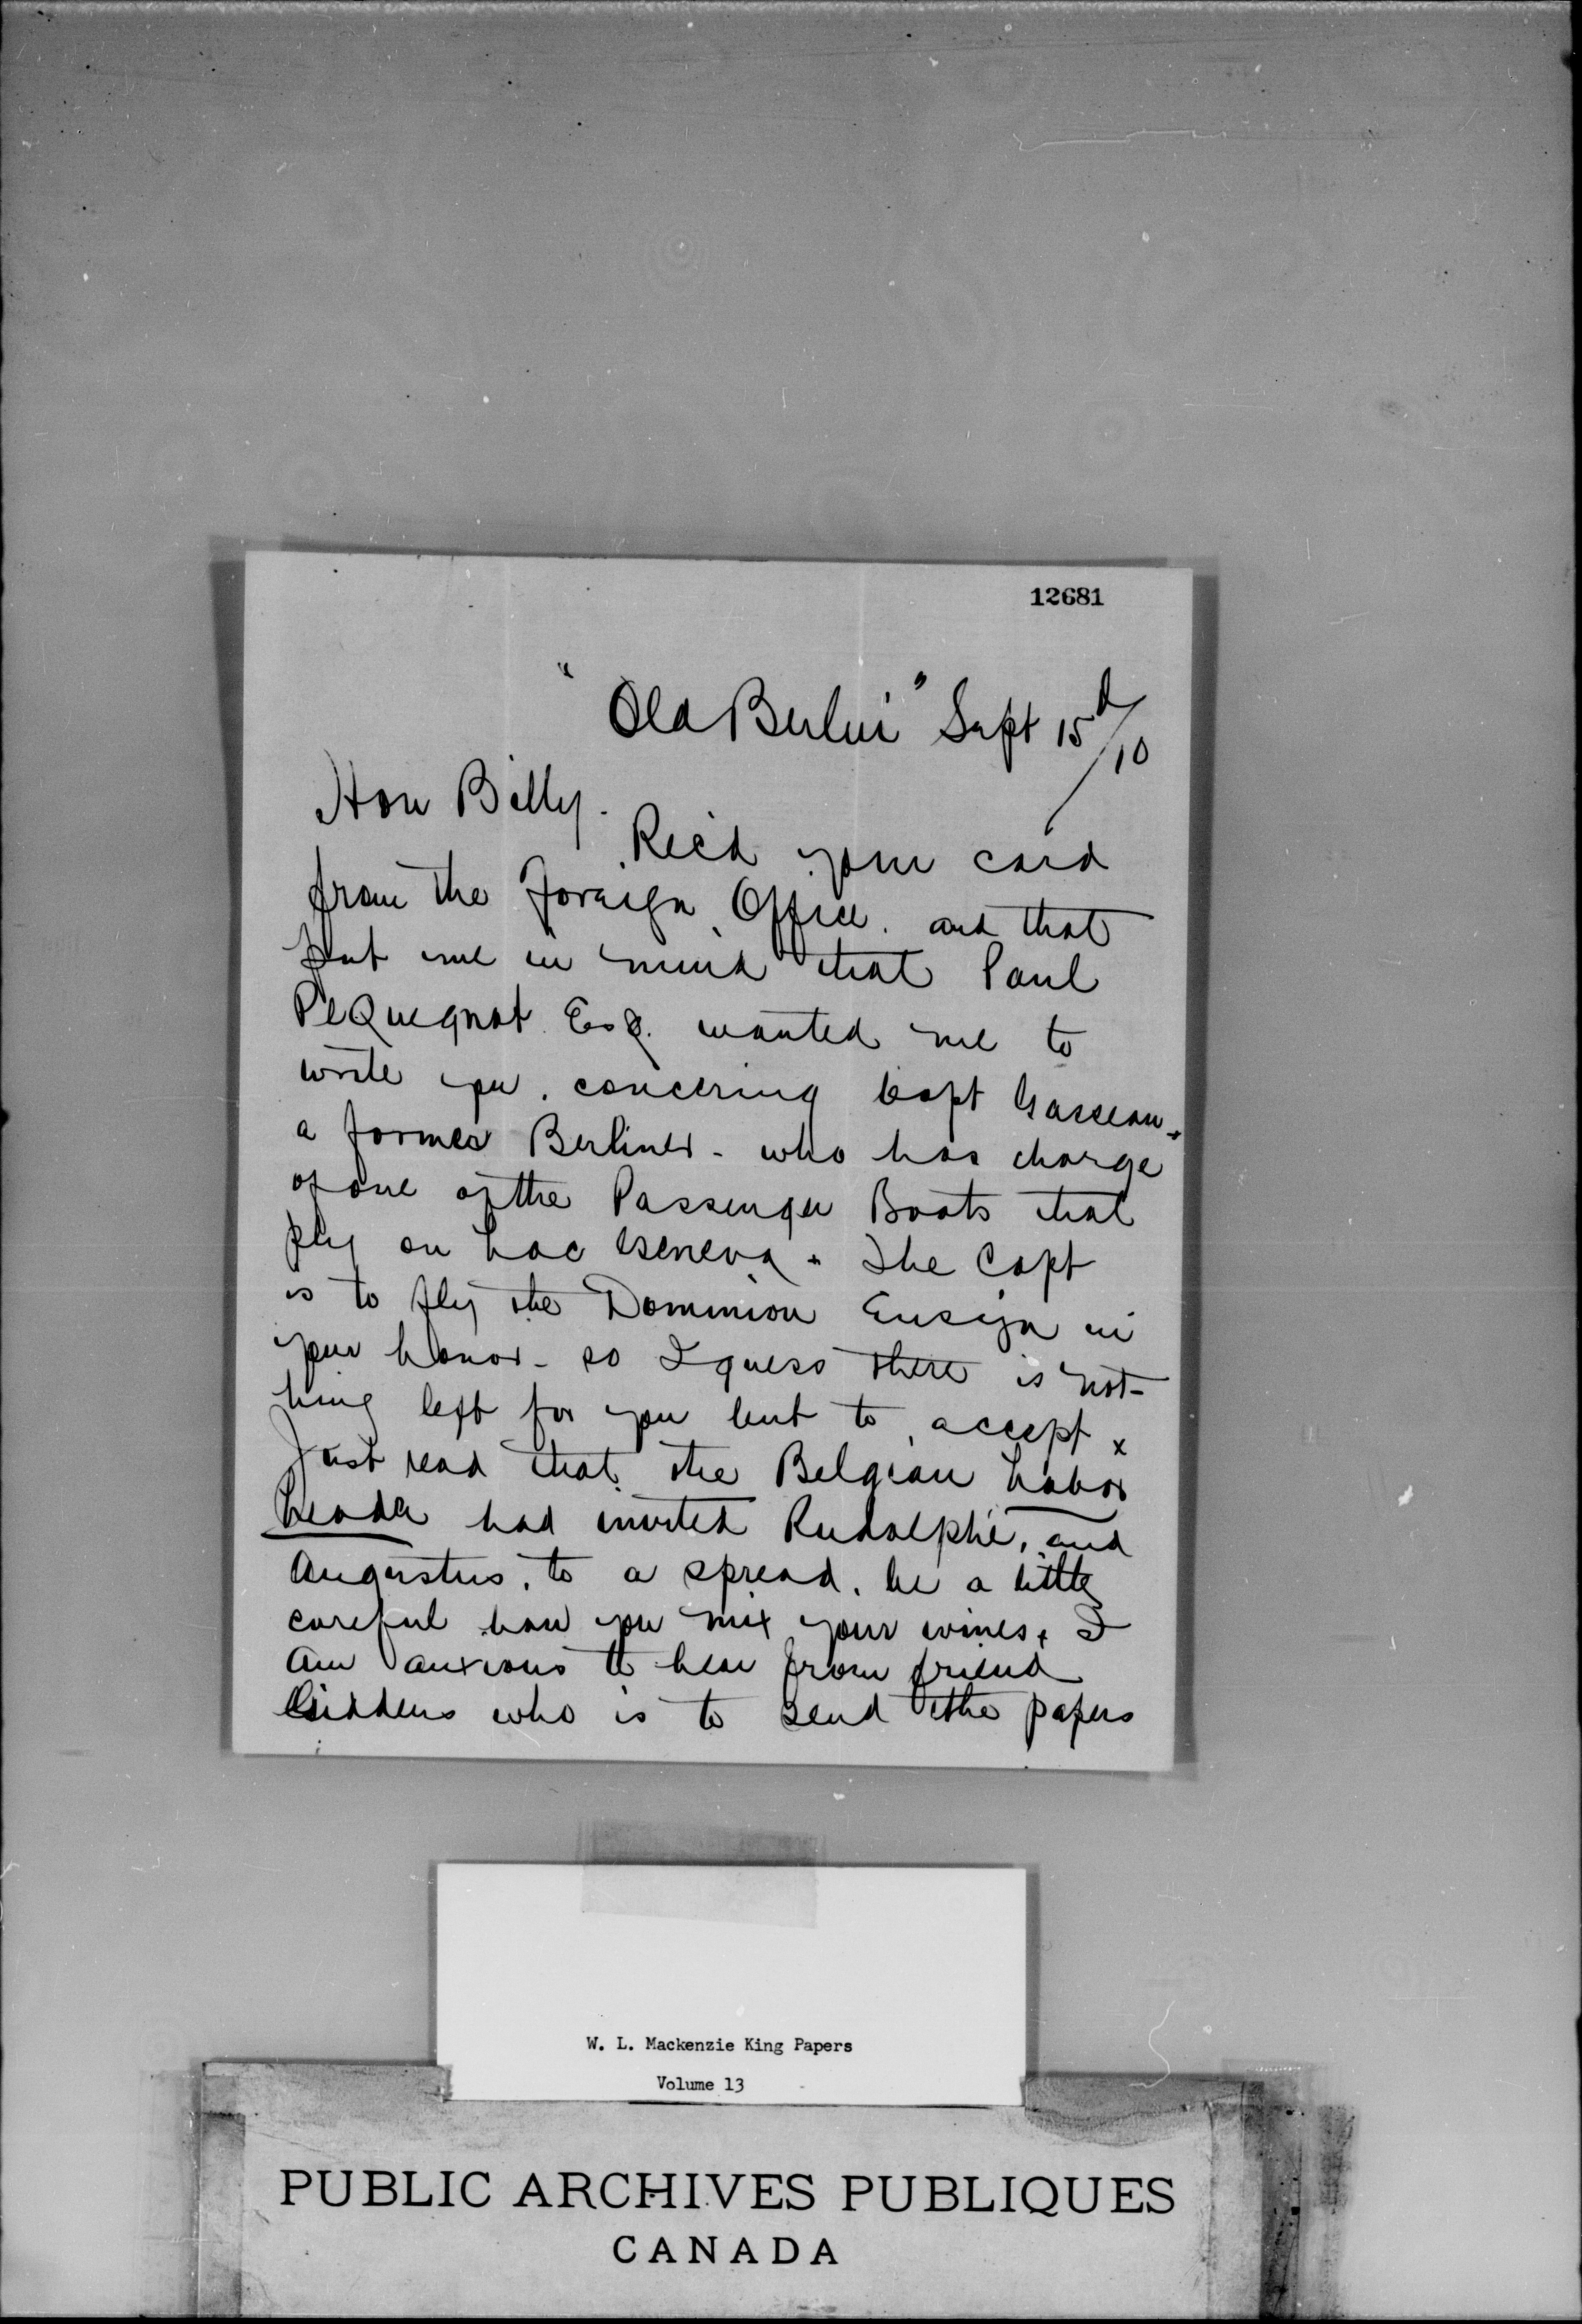 12681
"Old Berlin" Sept 15th/10
Hon Billy.
Rec'd your card
from the Foreign Office. and that
put me in mind that Paul
PeQuegnat Esq. wanted me to
write you. concering Capt Gasseau.
a former Berliner - who has charge
of one of the Passenger Boats that
ply on Lac Geneva. The Capt
is to fly the Dominion Ensign in
your honor - so I guess there is not-
hing left for you but to accept x
Just read that the Belgian Labor
Leader had invited Rudolphe, and
Augustus, to a spread. be a little
careful how you mix your wines. I
am anxious to hear from friend
Giddens who is to send the papers
W. L. Mackenzie King Papers
Volume 13
PUBLIC ARCHIVES PUBLIQUES
CANADA